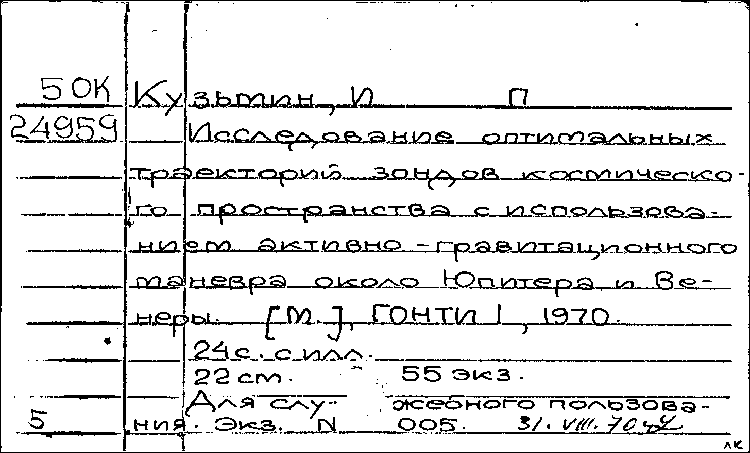 5 ОК Кузьмин, И П
24959 Исследование оптимальных
траекторий зондов космическо-
го пространства с использова-
нием активно-гравитационного
маневра около Юпитера и Ве-
неры. [М.], ГОНТИ 1, 1970.
24 с. с илл.
22 см. 55 экз.
Для слу- жебного пользова-
5 ния. Экз. N 005. 31.VIII.70
лк